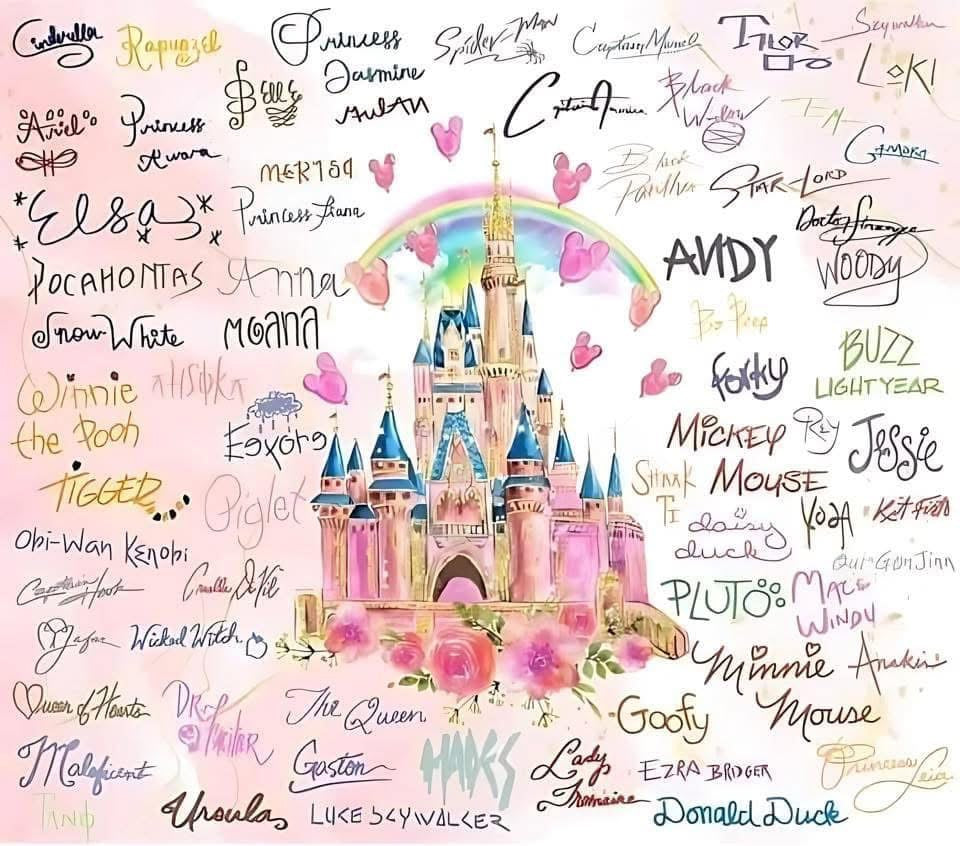 Cinderella
Rapunzel
Princess
Jasmine
Spider-Man
Captain Marvel
THOR
Skywalker
LOKI
Belle
MULAN
Captain America
Black
Widow
Ariel
Princess
Kwara
Gamora
MERIDA
Black
Panther
STAR-LORD
Elsa
Princess Tiana
Doctor Strange
ANDY
WOODY
POCAHONTAS
Anna
Bo Peep
Snow White
MOANA
BUZZ
LIGHTYEAR
Forky
Winnie
the Pooh
AHSOKA
Eeyore
MICKEY
MOUSE
REY
JESSIE
TIGGER
Piglet
SHAAK
TI
daisy
duck
YODA
Kit Fisto
OBI-WAN KENOBI
QUI-GON JINN
Captain Hook
Cruella De Vil
PLUTO
MACE
WINDU
Jafar
Wicked Witch
Minnie
Mouse
Anakin
Queen of Hearts
DR.
The Queen
Goofy
Maleficent
Gaston
HADES
Lady
Tremaine
EZRA BRIDGER
Princess
Leia
Ursula
LUKE SKYWALKER
Donald Duck